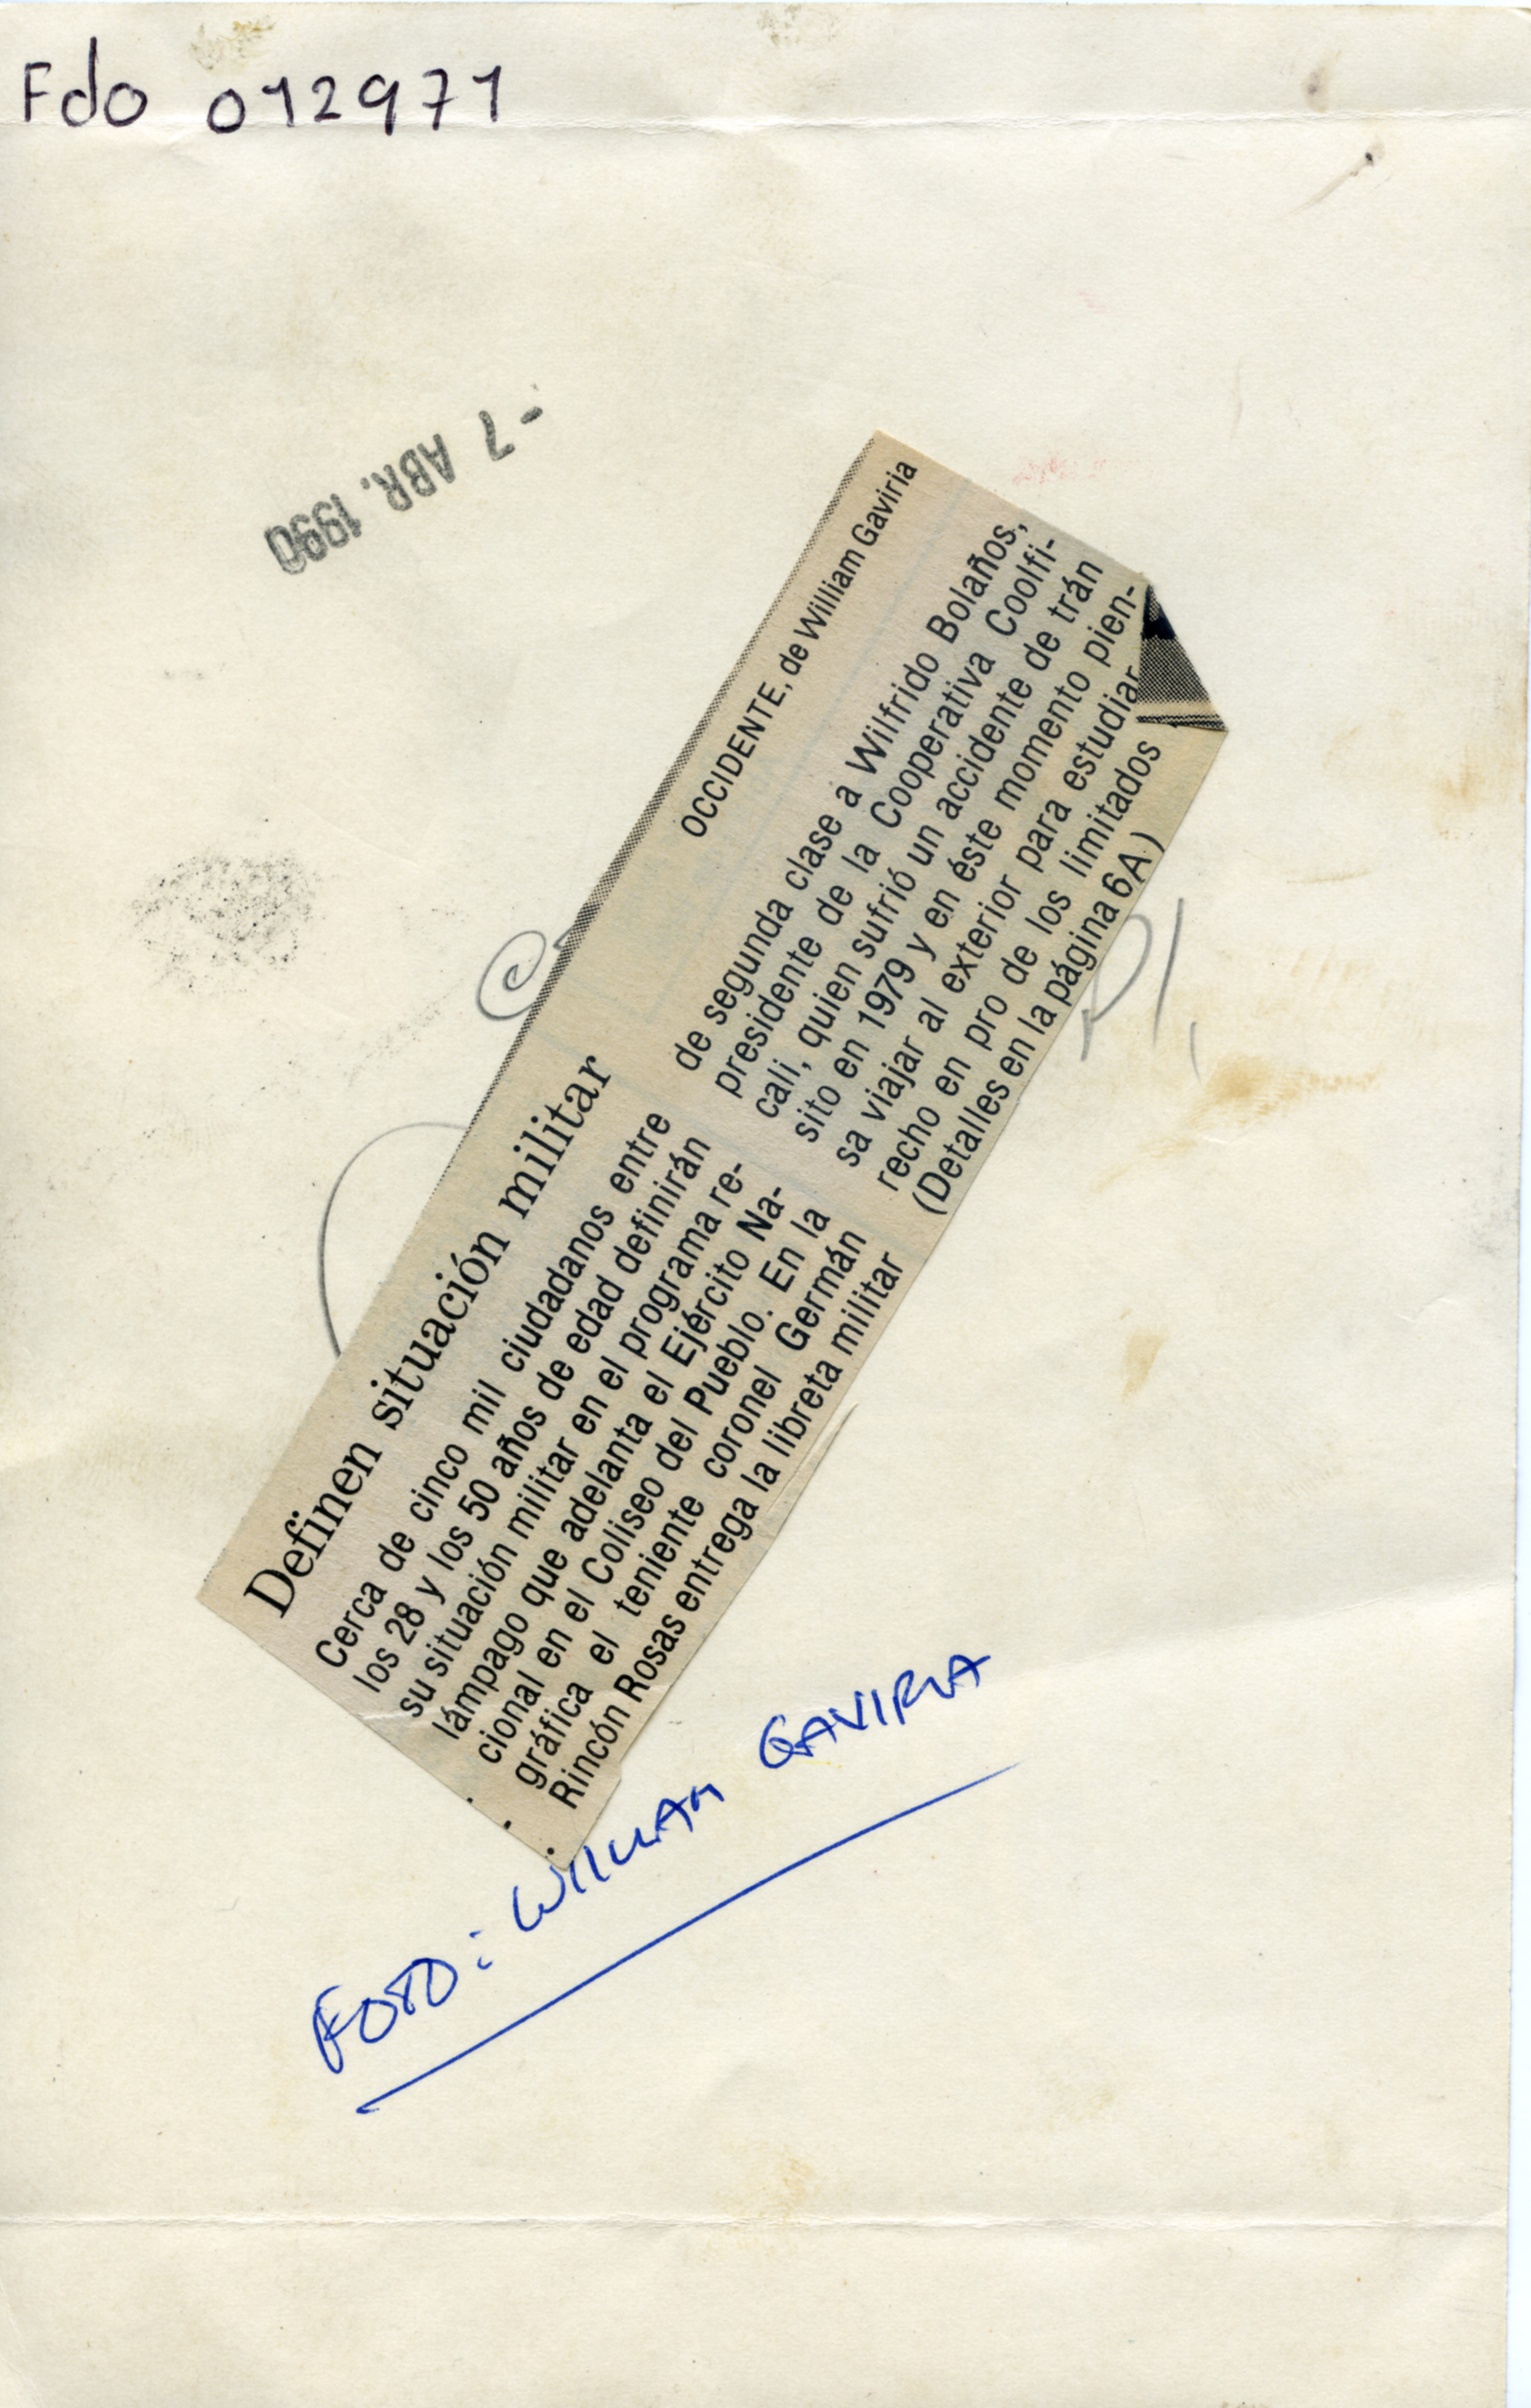 Fdo 012971
- 7 ABR. 1990
OCCIDENTE, de William Gaviria
Definen situación militar
Cerca de cinco mil ciudadanos entre
los 28 y los 50 años de edad definirán
su situación militar en el programa re-
lámpago que adelanta el Ejército Na-
cional en el Coliseo del Pueblo. En la
gráfica el teniente coronel Germán
Rincón Rosas entrega la libreta militar
de segunda clase a Wilfrido Bolaños,
presidente de la Cooperativa Coolfi-
cali, quien sufrió un accidente de trán
sito en 1979 y en éste momento pien-
sa viajar al exterior para estudiar
recho en pro de los limitados
(Detalles en la página 6A)
FOTO: WILLIAM GAVIRIA